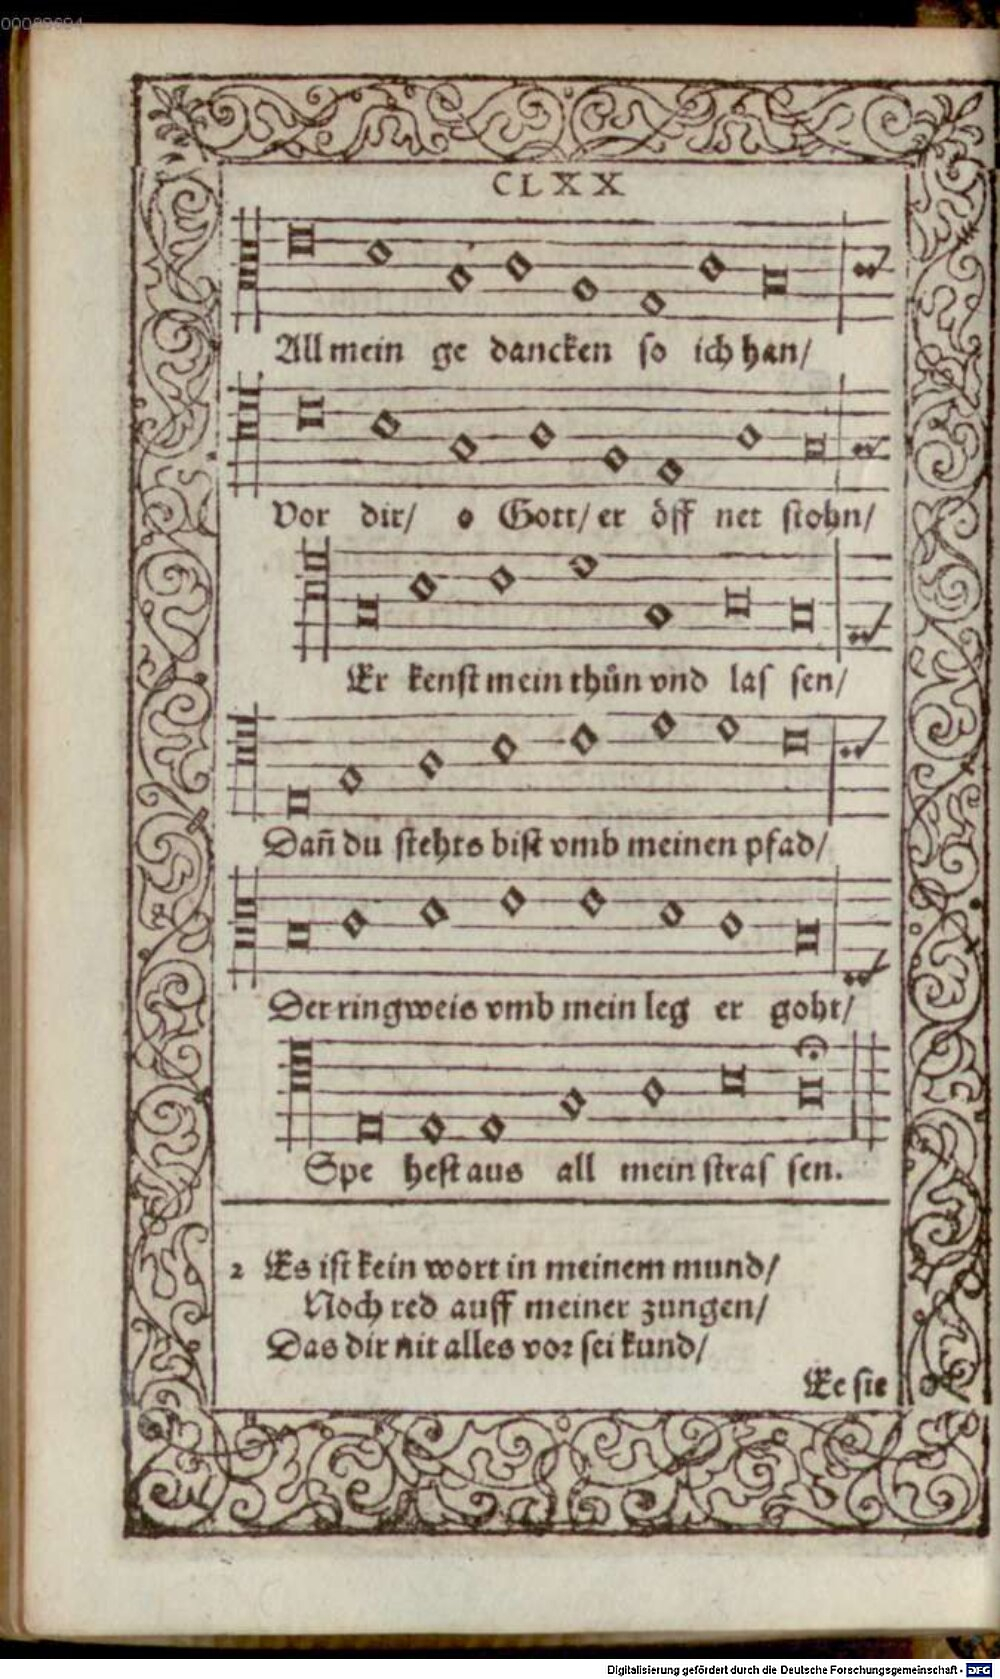 00089694
CLXX
All mein ge dancken so ich han/
Vor dir/ o Gott/ er öff net stohn/
Er kenst mein thůn vnd las sen/
Dañ du stehts bist vmb meinen pfad/
Der ringweis vmb mein leg er goht/
Spe hest aus all mein stras sen.
2 Es ist kein wort in meinem mund/
Noch red auff meiner zungen/
Das dir nit alles vor sei kund/
Ee sie
Digitalisierung gefördert durch die Deutsche Forschungsgemeinschaft - DFG